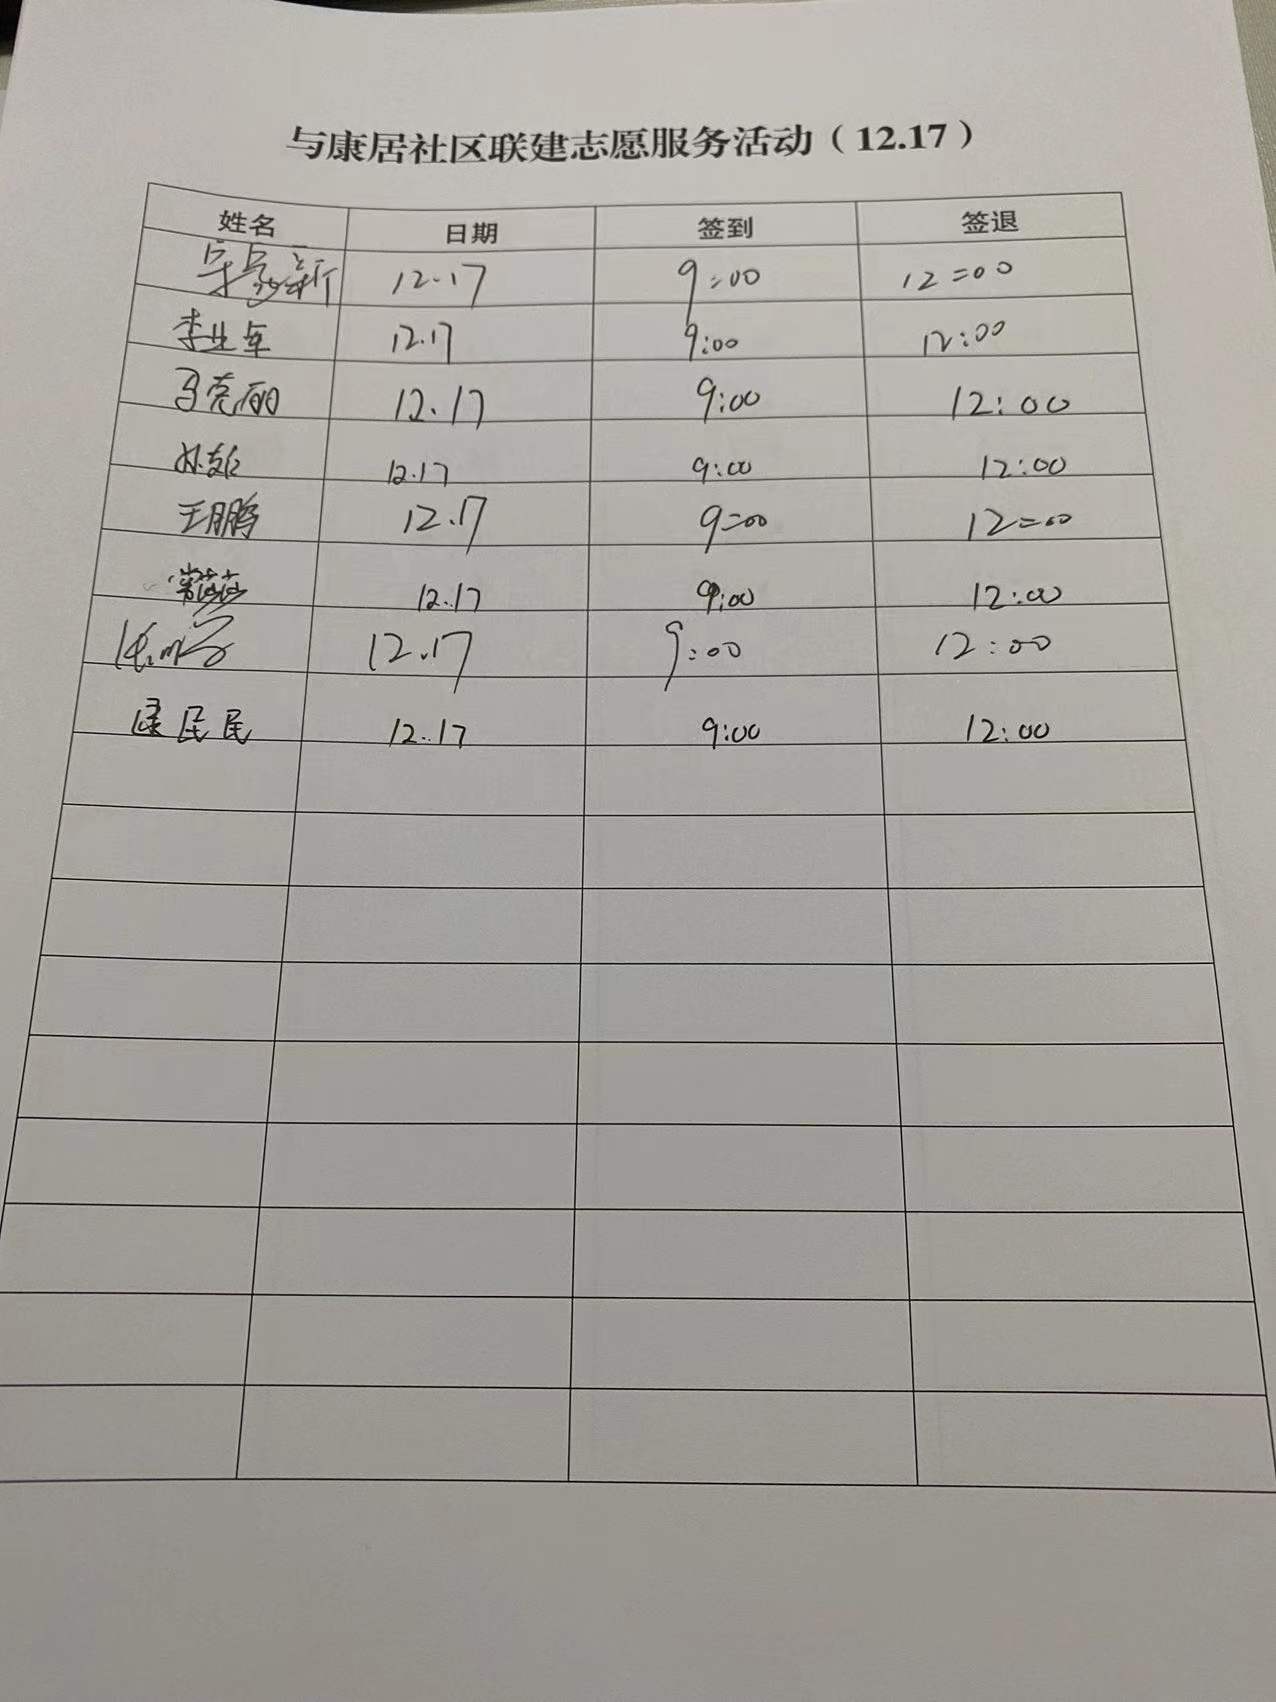 与康居社区联建志愿服务活动（12.17）
姓名 日期 签到 签退
12.17 9:00 12:00
李生车 12.17 9:00 12:00
马亮丽 12.17 9:00 12:00
12.17 9:00 12:00
王鹏 12.17 9:00 12:00
常莎莎 12.17 9:00 12:00
12.17 9:00 12:00
康民民 12.17 9:00 12:00